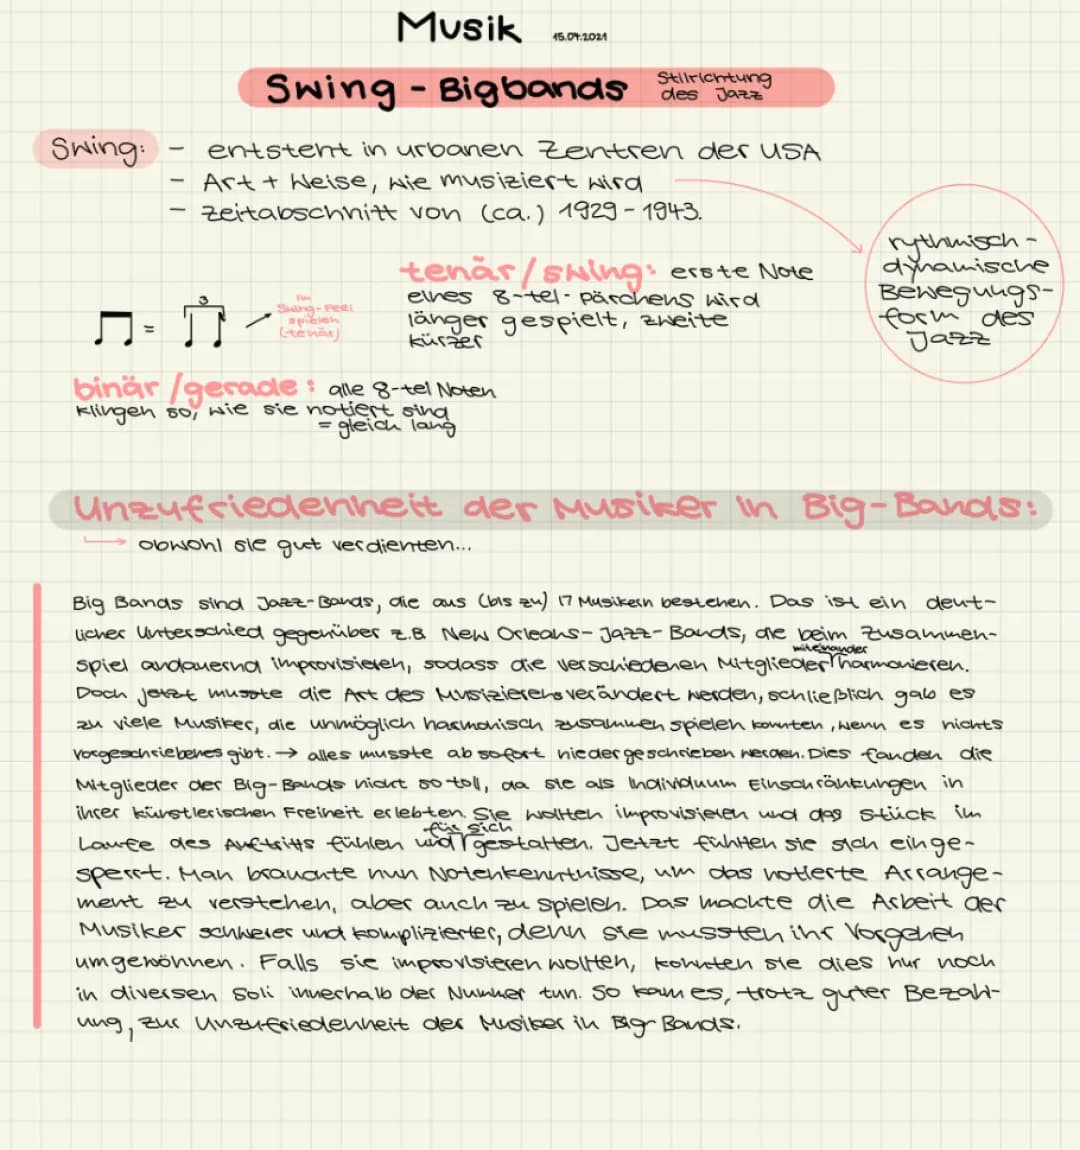 Musik 15.04.2021
Swing - Bigbands Stilrichtung
des Jazz
Swing: - entsteht in urbanen Zentren der USA
- Art + Weise, wie musiziert wird
- Zeitabschnitt von (ca.) 1929 - 1943.
rythmisch-
dynamische
Bewegungs-
form des
Jazz
tenär/swing: erste Note
eines 8-tel-pärchens wird
länger gespielt, zweite
kürzer
= 3
im
Swing-Feel
spielen
(tenär)
binär/gerade: alle 8-tel Noten
klingen so, wie sie notiert sind
= gleich lang
Unzufriedenheit der Musiker in Big-Bands:
obwohl sie gut verdienten...
Big Bands sind Jazz-Bands, die aus (bis zu) 17 Musikern bestehen. Das ist ein deut-
licher Unterschied gegenüber z.B New Orleans-Jazz-Bands, die beim Zusammen-
spiel andauernd improvisieren, sodass die verschiedenen Mitglieder miteinander harmonieren.
Doch jetzt musste die Art des Musizierens verändert werden, schließlich gab es
zu viele Musiker, die unmöglich harmonisch zusammen spielen konnten, wenn es nichts
vorgeschriebenes gibt. → alles musste ab sofort niedergeschrieben werden. Dies fanden die
Mitglieder der Big-Bands nicht so toll, da sie als Individuum Einschränkungen in
ihrer künstlerischen Freiheit erlebten. Sie wollten improvisieren und das Stück im
Laufe des Auftritts fühlen und für sich gestalten. Jetzt fühlten sie sich einge-
sperrt. Man brauchte nun Notenkenntnisse, um das notierte Arrange-
ment zu verstehen, aber auch zu spielen. Das machte die Arbeit der
Musiker schwerer und komplizierter, denn sie mussten ihr Vorgehen
umgewöhnen. Falls sie improvisieren wollten, konnten sie dies nur noch
in diversen Soli innerhalb der Nummer tun. So kam es, trotz guter Bezahl-
ung, zur Unzufriedenheit der Musiker in Big-Bands.